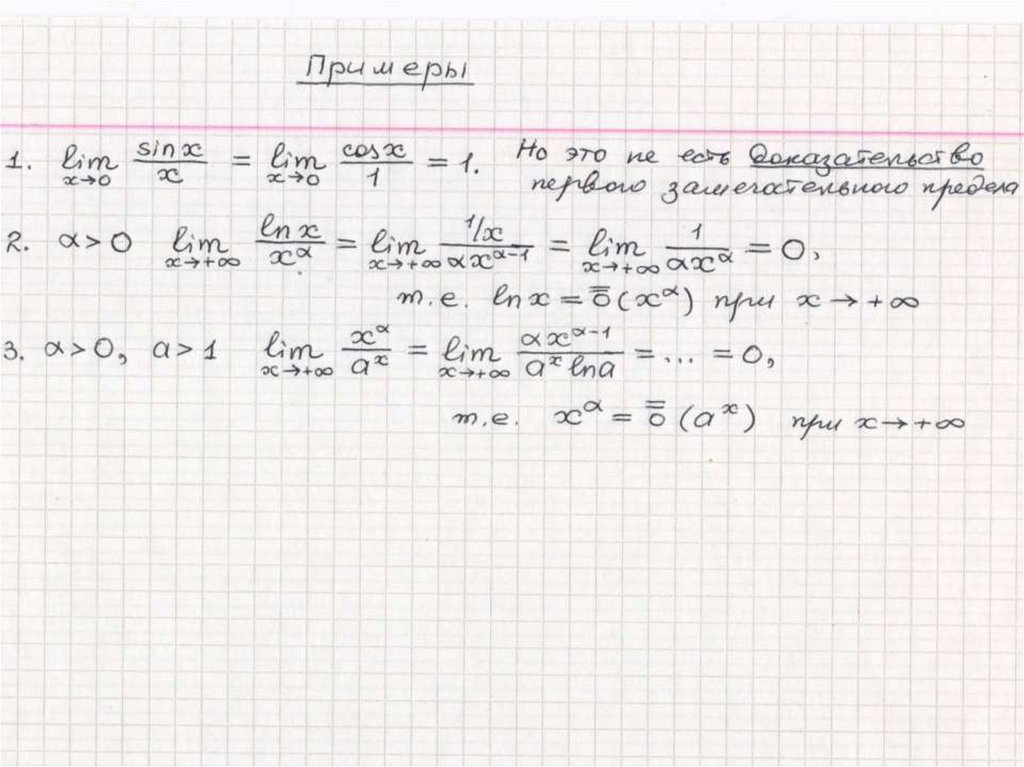 Примеры
1. lim x→0 sin x / x = lim x→0 cos x / 1 = 1. Но это не есть доказательство
первого замечательного предела
2. α > 0 lim x→+∞ ln x / x^α = lim x→+∞ 1/x / αx^(α-1) = lim x→+∞ 1 / αx^α = 0,
т.е. ln x = o̿(x^α) при x → +∞
3. α > 0, a > 1 lim x→+∞ x^α / a^x = lim x→+∞ αx^(α-1) / a^x ln a = ... = 0,
т.е. x^α = o̿(a^x) при x → +∞